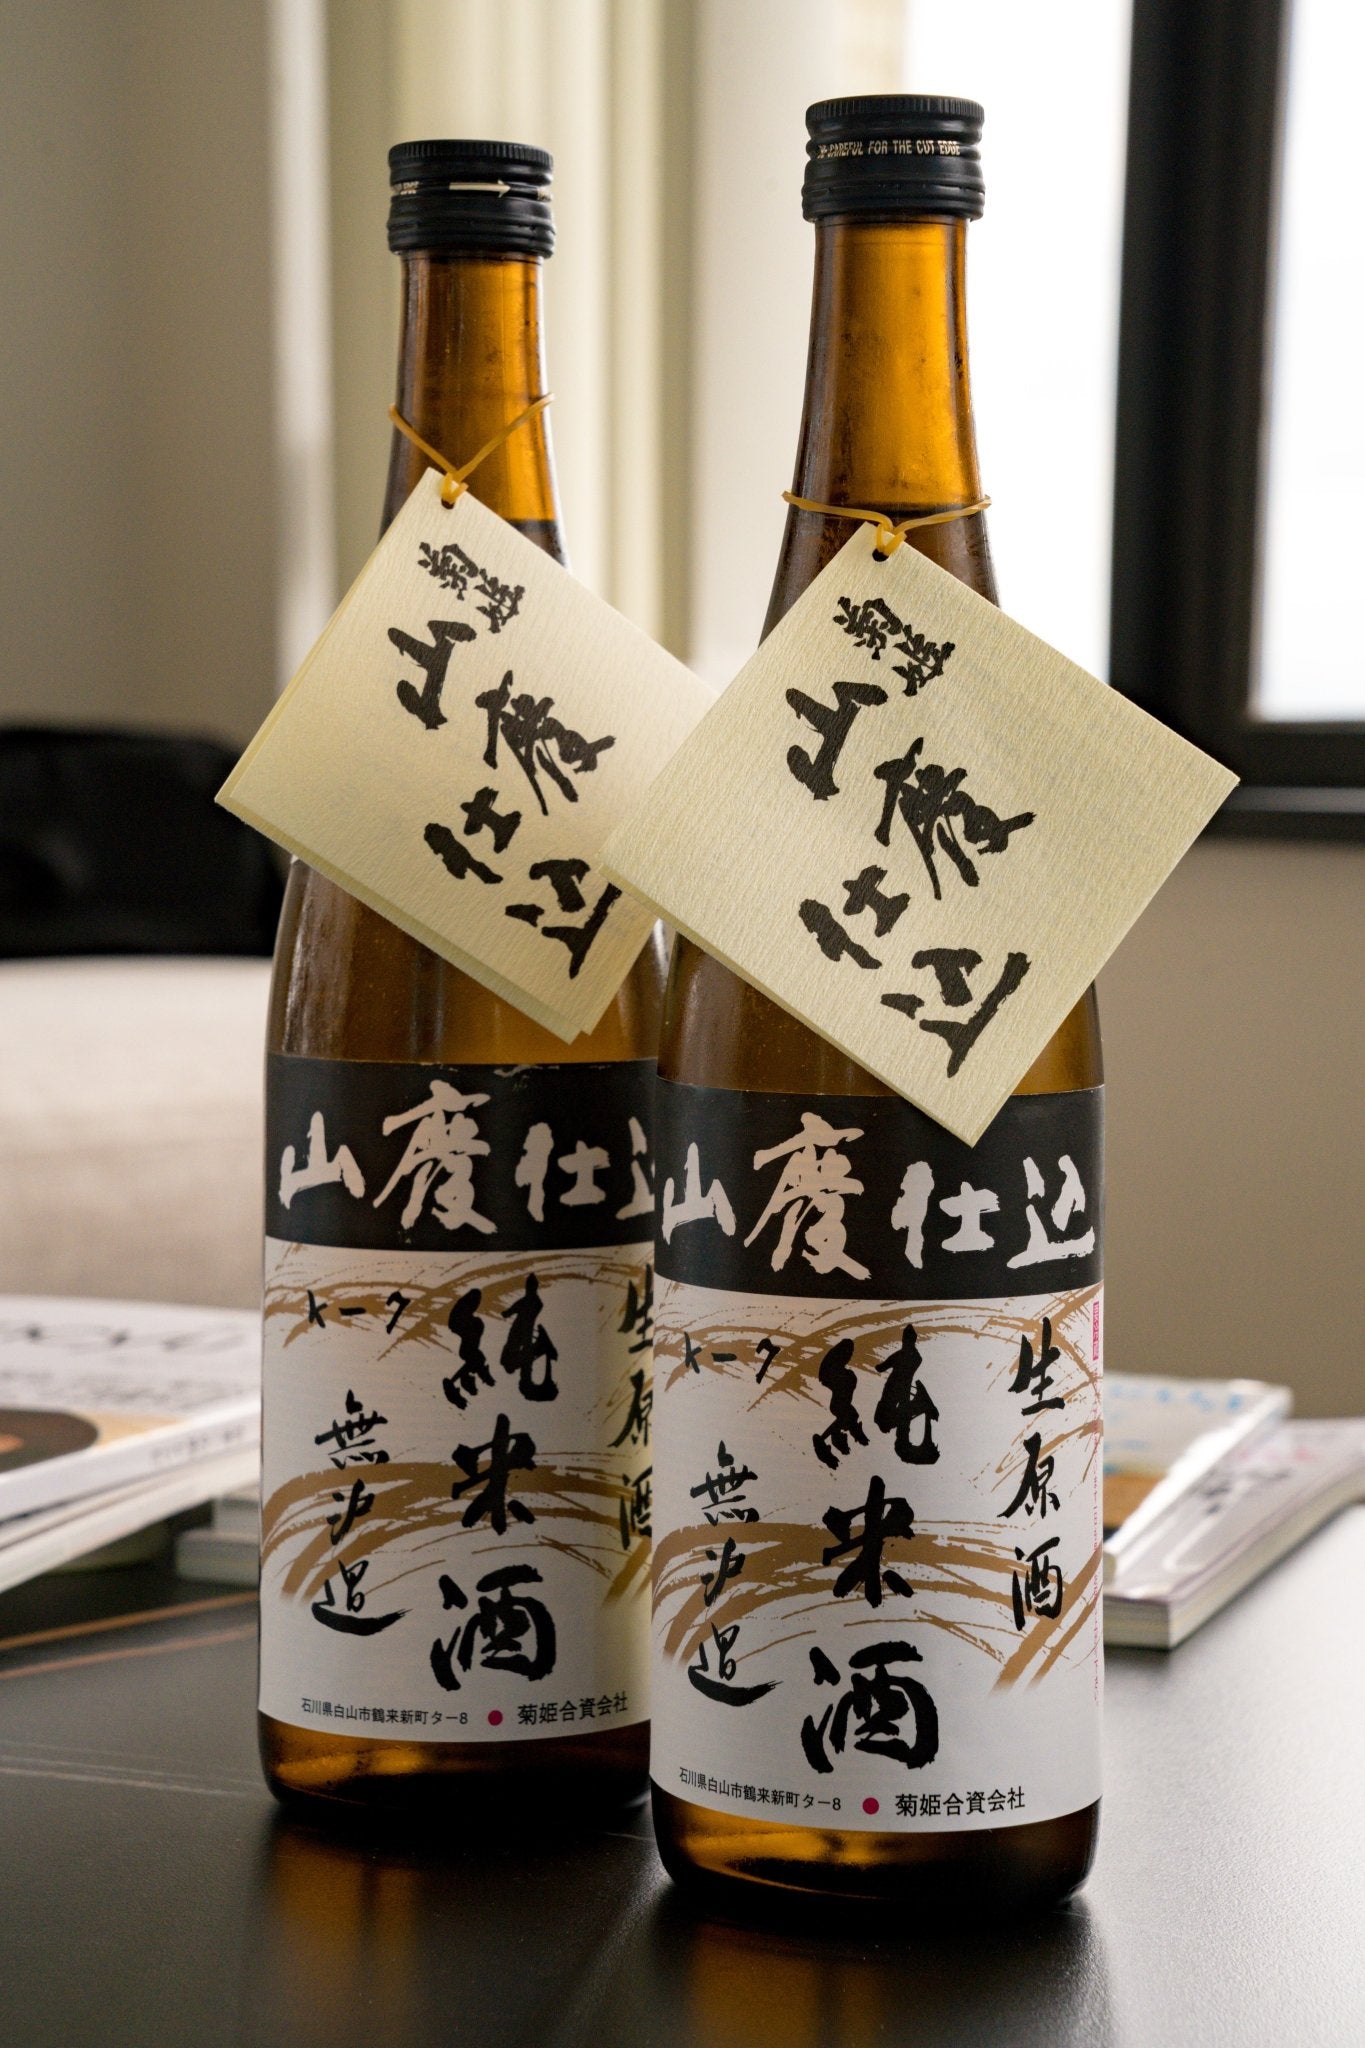 EDGE
菊姫
山廃仕込
山廃仕込
k-7
純米酒
生原酒
無汐過
石川県白山市鶴来新町タ-8 ● 菊姫合資会社
CAREFUL FOR THE CUT EDGE
菊姫
山廃仕込
山廃仕込
k-7
純米酒
生原酒
無汐過
石川県白山市鶴来新町タ-8 ● 菊姫合資会社